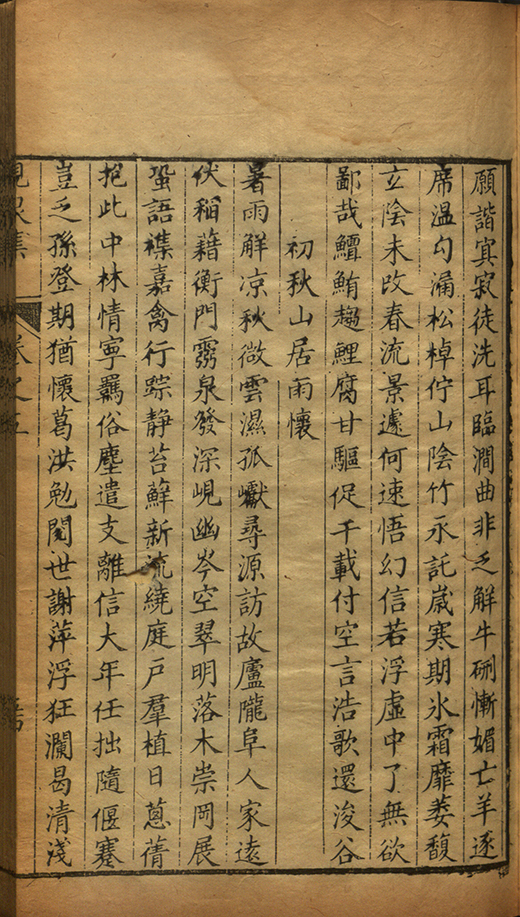 願諧寘寂徒洗耳臨澗曲非乏解牛硎慚媚亡羊逐
席溫勾漏松棹佇山陰竹永託嵗寒期氷霜靡萎馥
立陰未攺春流景遽何速悟幻信若浮虛中了無欲
鄙哉鱣鮪趨鯉腐甘驅促千載付空言浩歌還浚谷
初秋山居雨懷
暑雨解凉秋微雲濕孤巘尋源訪故廬隴阜人家逺
伏稲藉衡門霧泉發深峴幽岑空翠明落木崇岡展
蛩語襍嘉禽行踪静苔蘚新流繞庭戸羣植日蔥蒨
抱此中林情寧羈俗塵遣支離信大年任拙隨偃蹇
豈乏孫登期猶懷葛洪勉閱世謝萍浮狂瀾曷清淺
集 卷之五